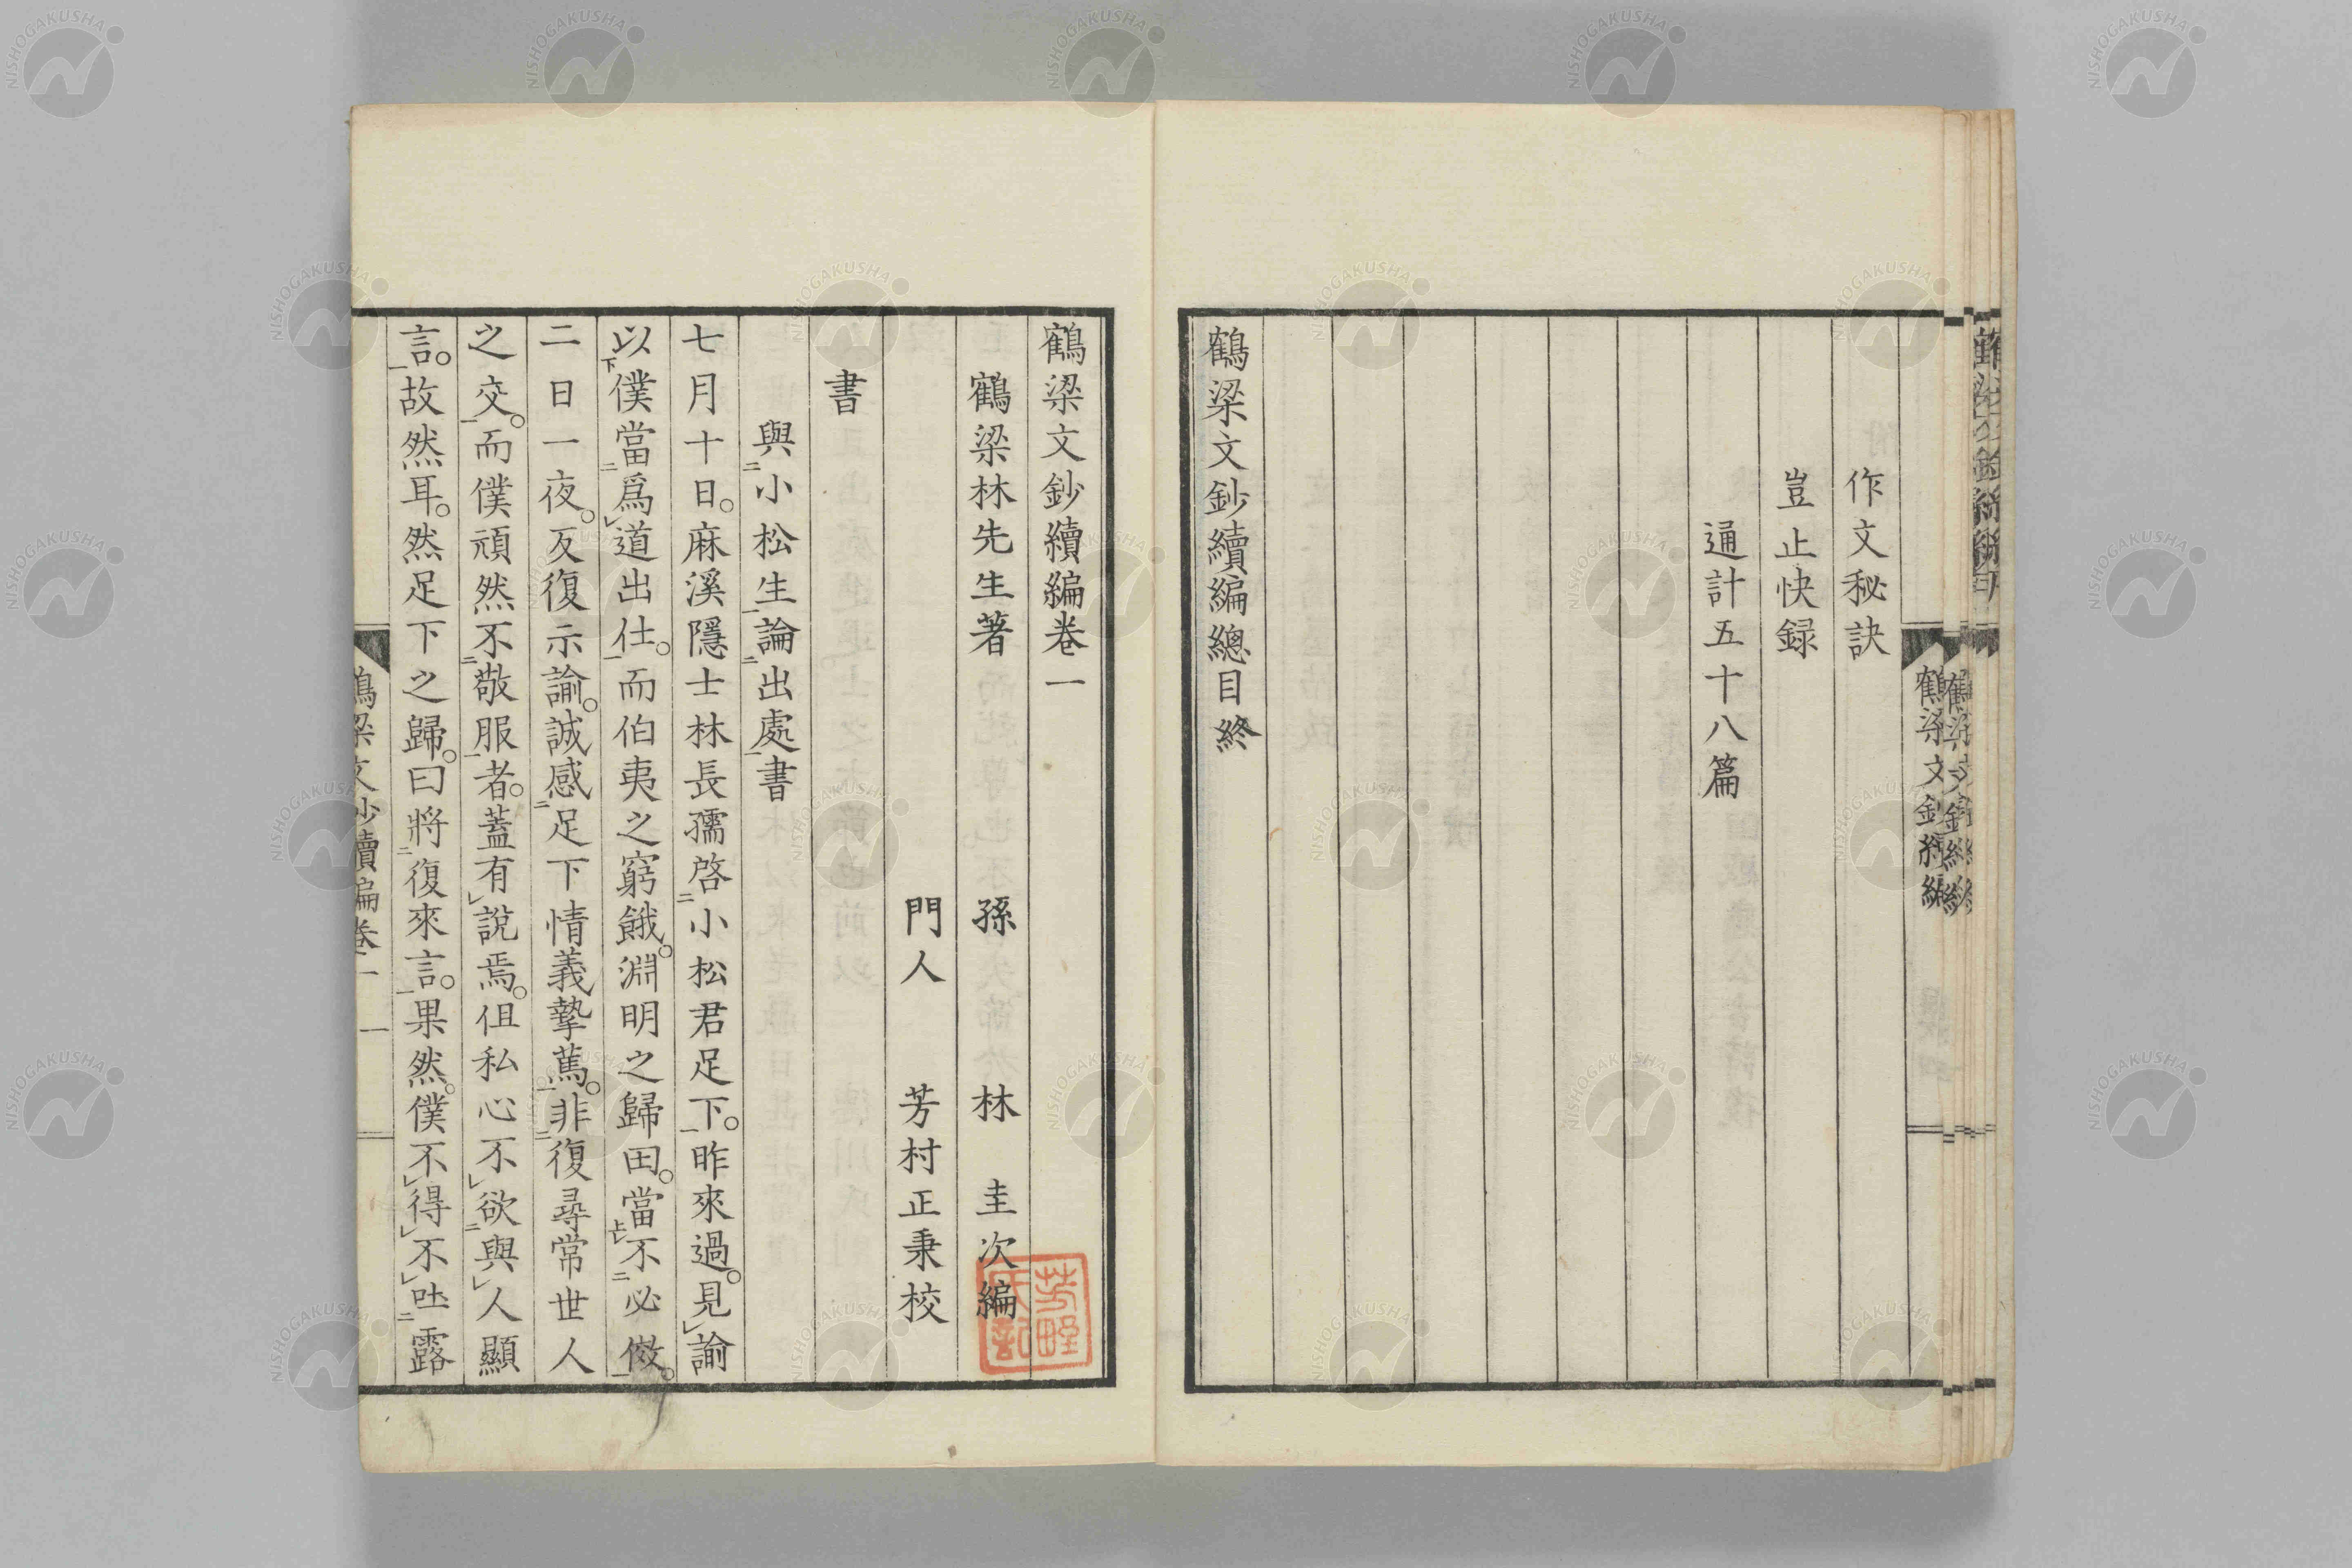 作文秘訣
豈止快録
通計五十八篇
鶴梁文鈔續編總目終
鶴梁文鈔續編卷一
鶴梁林先生著 孫 林 圭次編
門人 芳村正秉校
書
與小松生論出處書
七月十日。麻溪隱士林長孺啓小松君足下。昨來過。見諭
以僕當爲道出仕。而伯夷之窮餓。淵明之歸田。當不必傚。
二日一夜。反復示諭。誠感足下情義摯篤。非復尋常世人
之交。而僕頑然不敬服者。蓋有說焉。但私心不欲與人顯
言。故然耳。然足下之歸。曰將復來言。果然。僕不得不吐露
鶴梁文鈔續編卷一 一
NISHOGAKUSHA